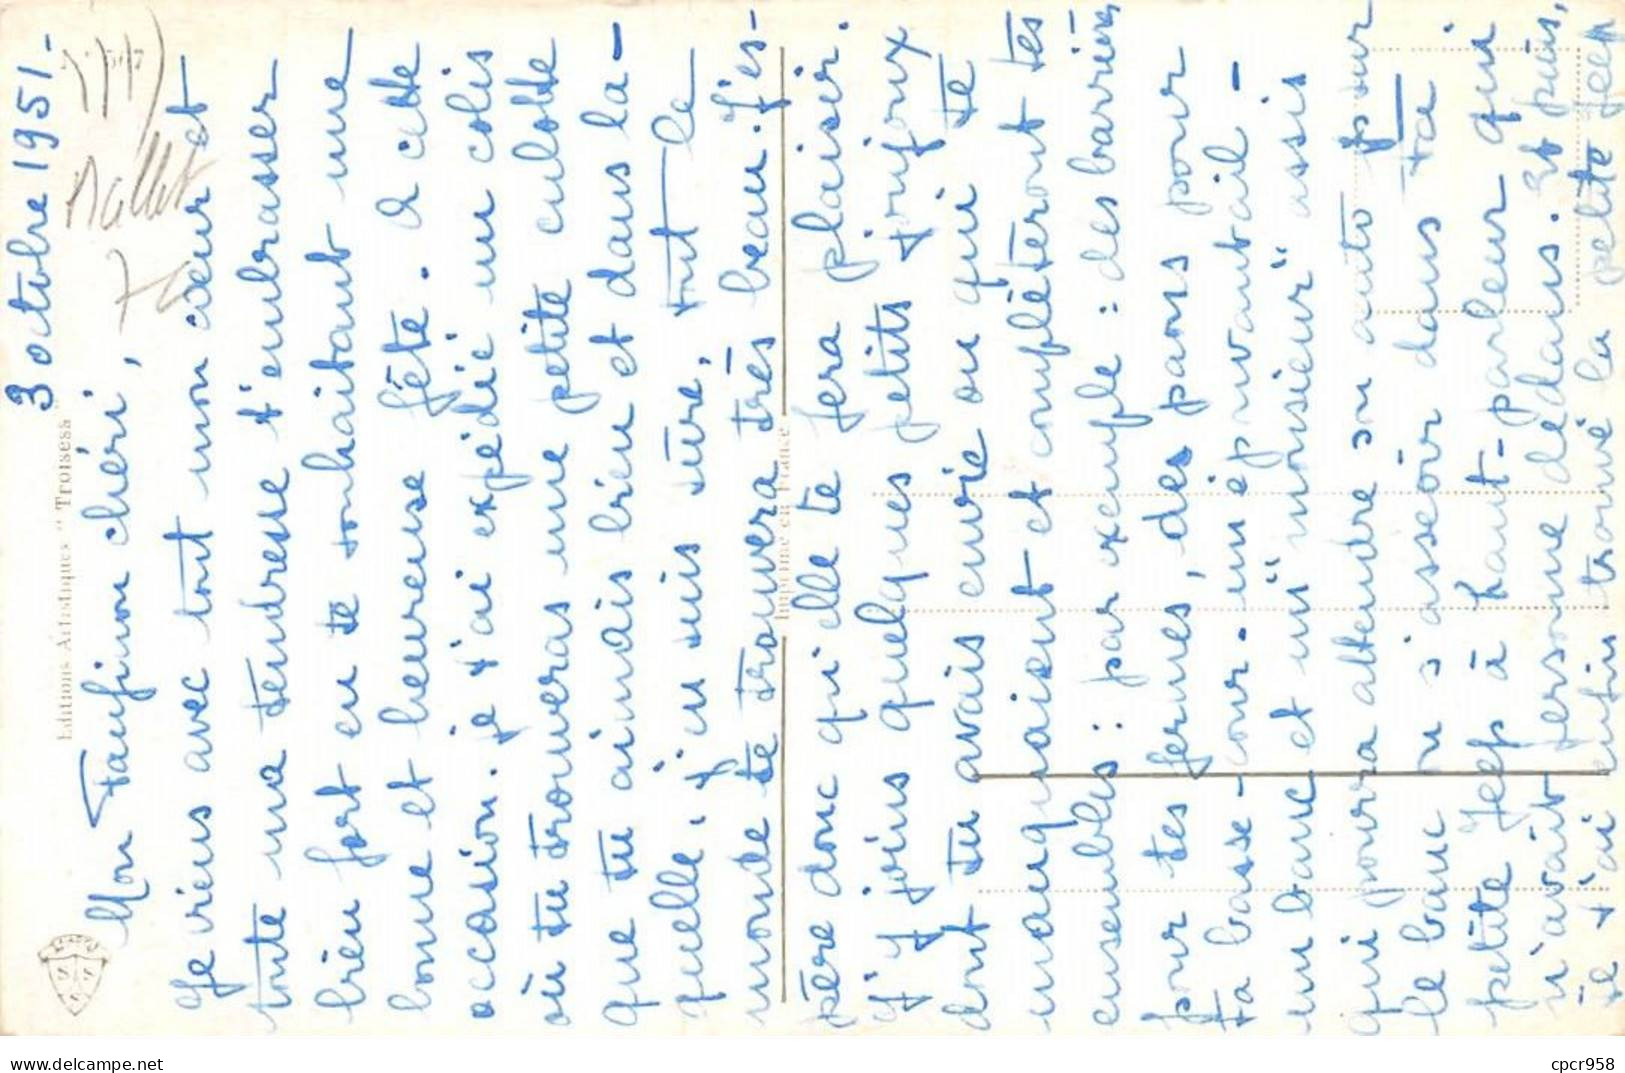 3 octobre 1951-
Mon Fanfinou chéri,
Je viens avec tout mon cœur et
toute ma tendresse t'embrasser
bien fort en te souhaitant une
bonne et heureuse fête. A cette
occasion. je t'ai expédié un colis
où tu trouveras une petite culotte
que tu aimais bien et dans la-
quelle, j'en suis sûre, tout le
monde te trouvera très beau. J'es-
père donc qu'elle te fera plaisir.
J'y joins quelques petits joujoux
dont tu avais envie ou qui te
manquaient et complèteront tes
ensembles : par exemple : des barrières
pour tes fermes, des paons pour
ta basse-cour - un épouvantail -
un banc et un "monsieur" assis
qui pourra attendre son auto sur
le banc ou s'asseoir dans ta
petite Jeep à haut-parleur qui
n'avait personne dedans. Et puis,
je t'ai enfin trouvé la petite Jeep
Mallet
Editions Artistiques "Troisess"
Imprimé en France
cpcr958